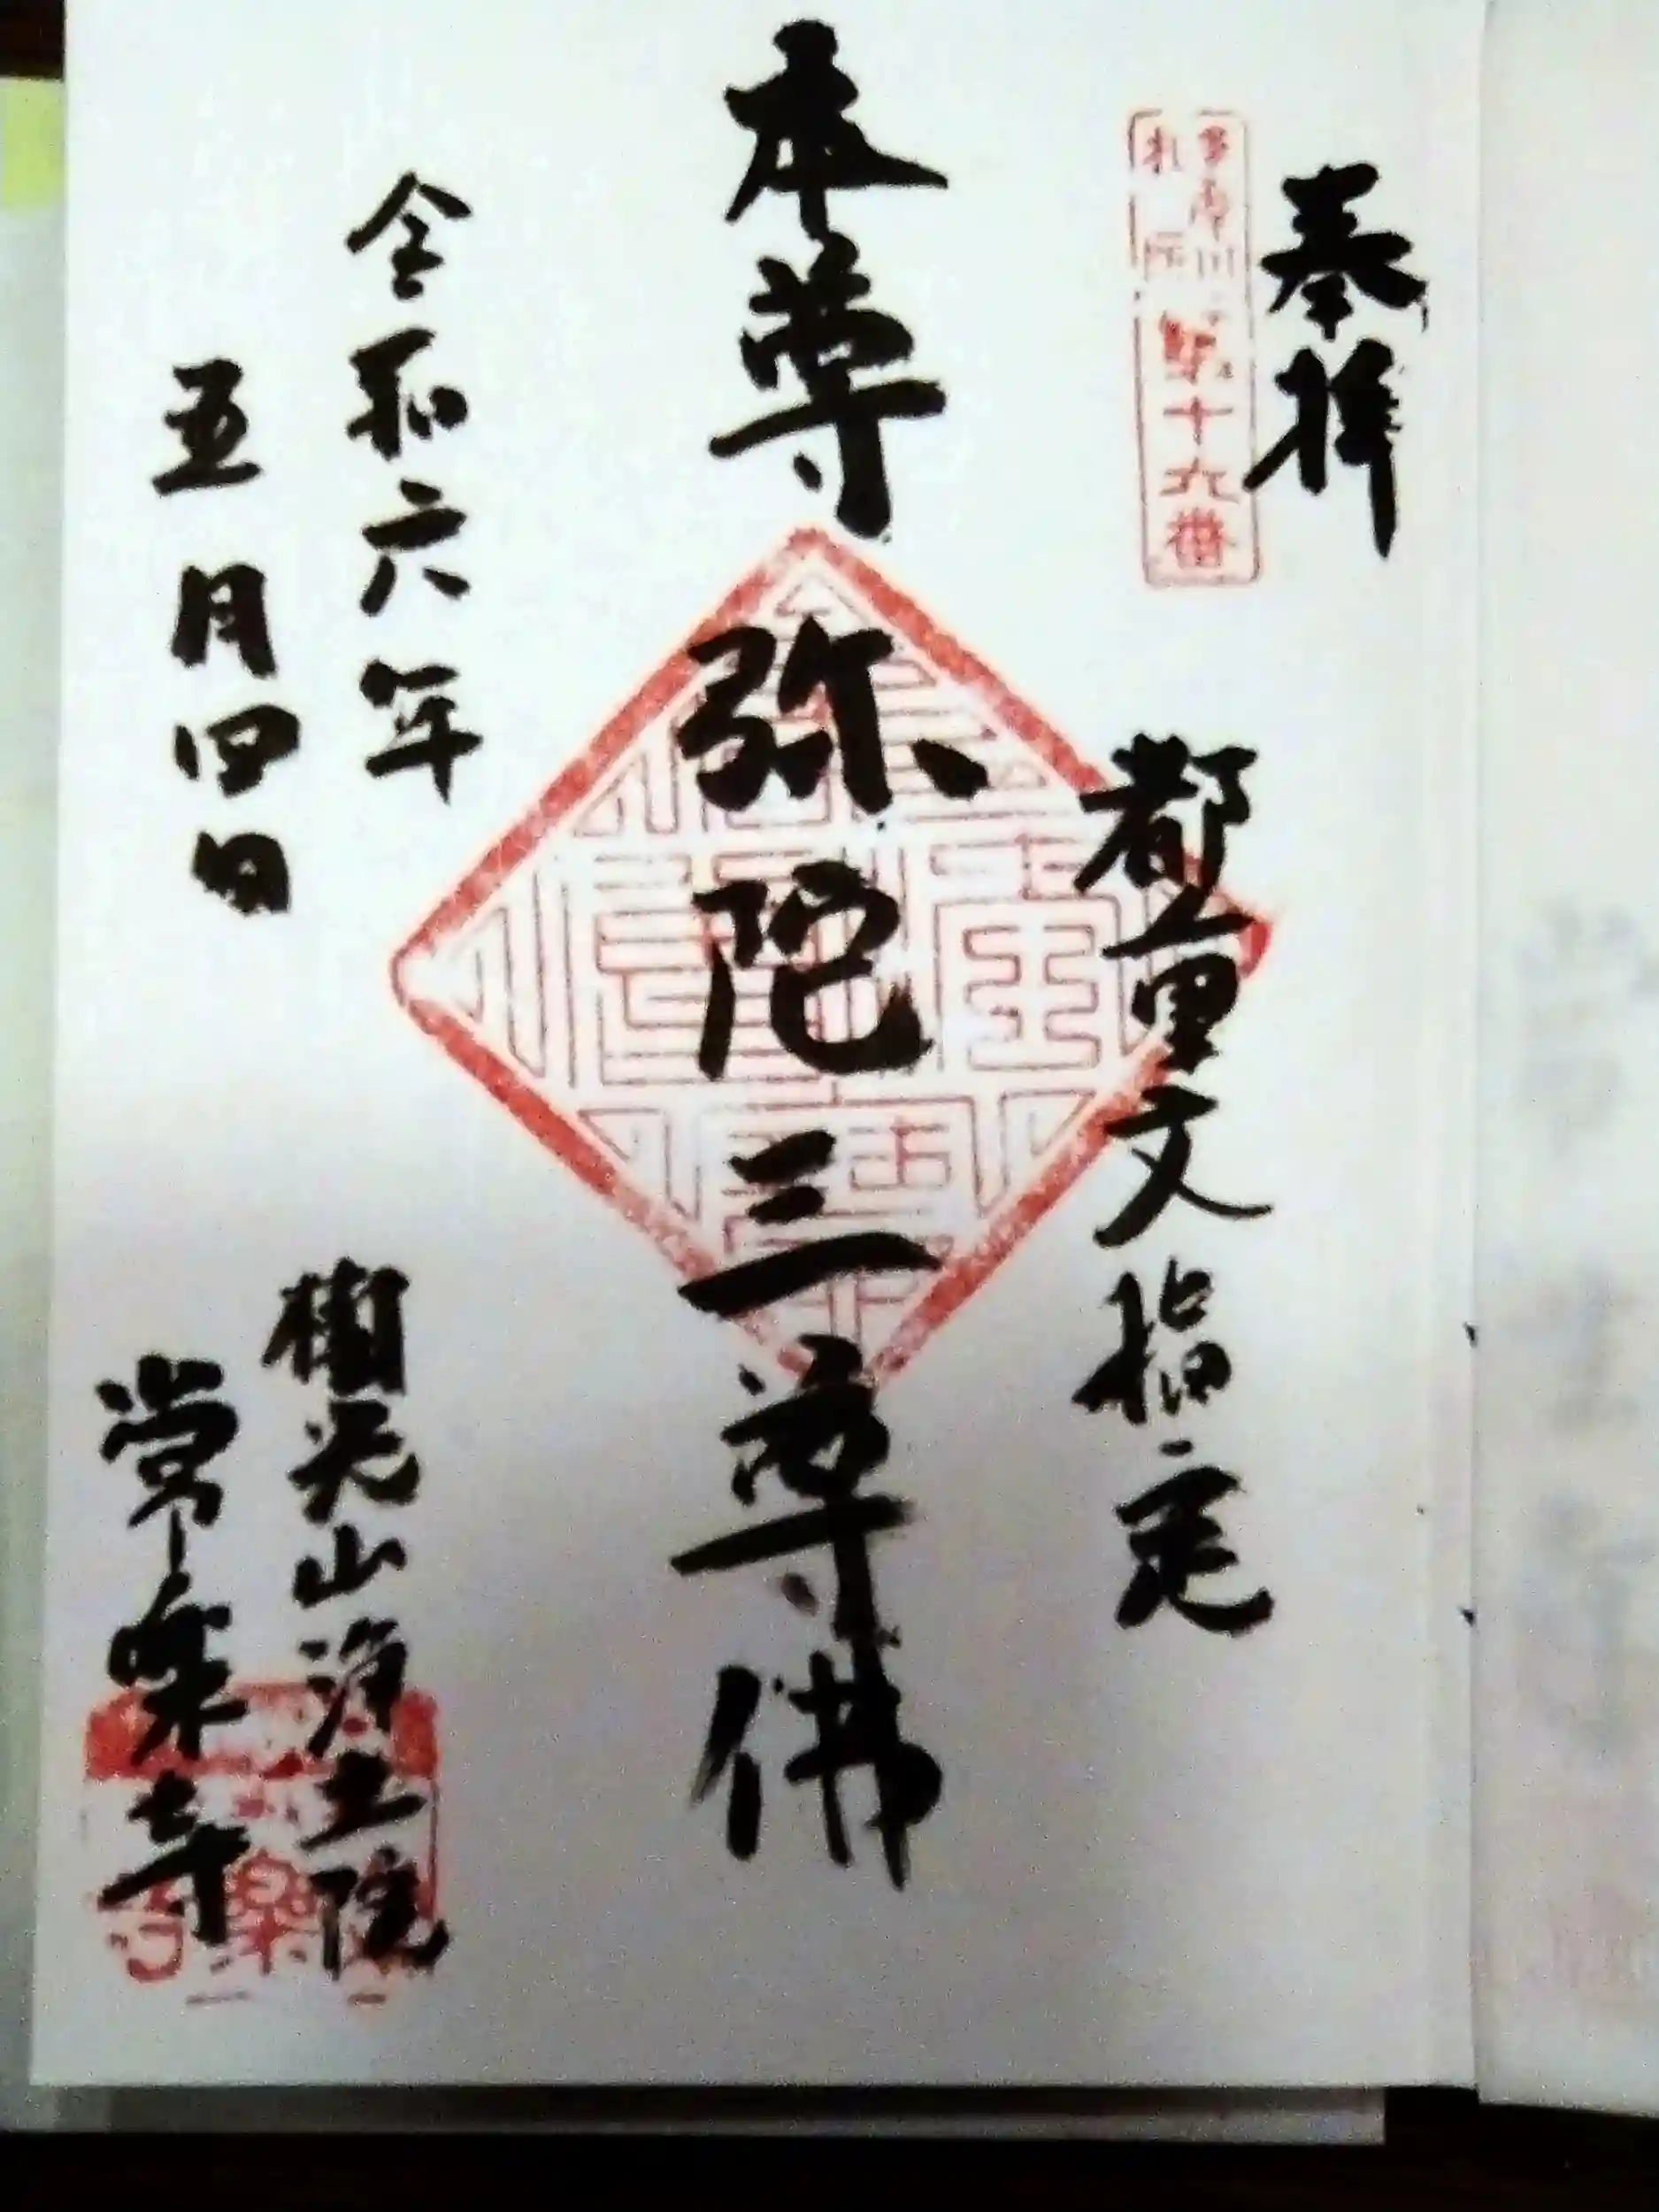 奉拝
多摩川
札所 第十九番
都重文指定
本尊 弥陀三尊佛
令和六年
五月四日
樹光山浄土院
常楽寺